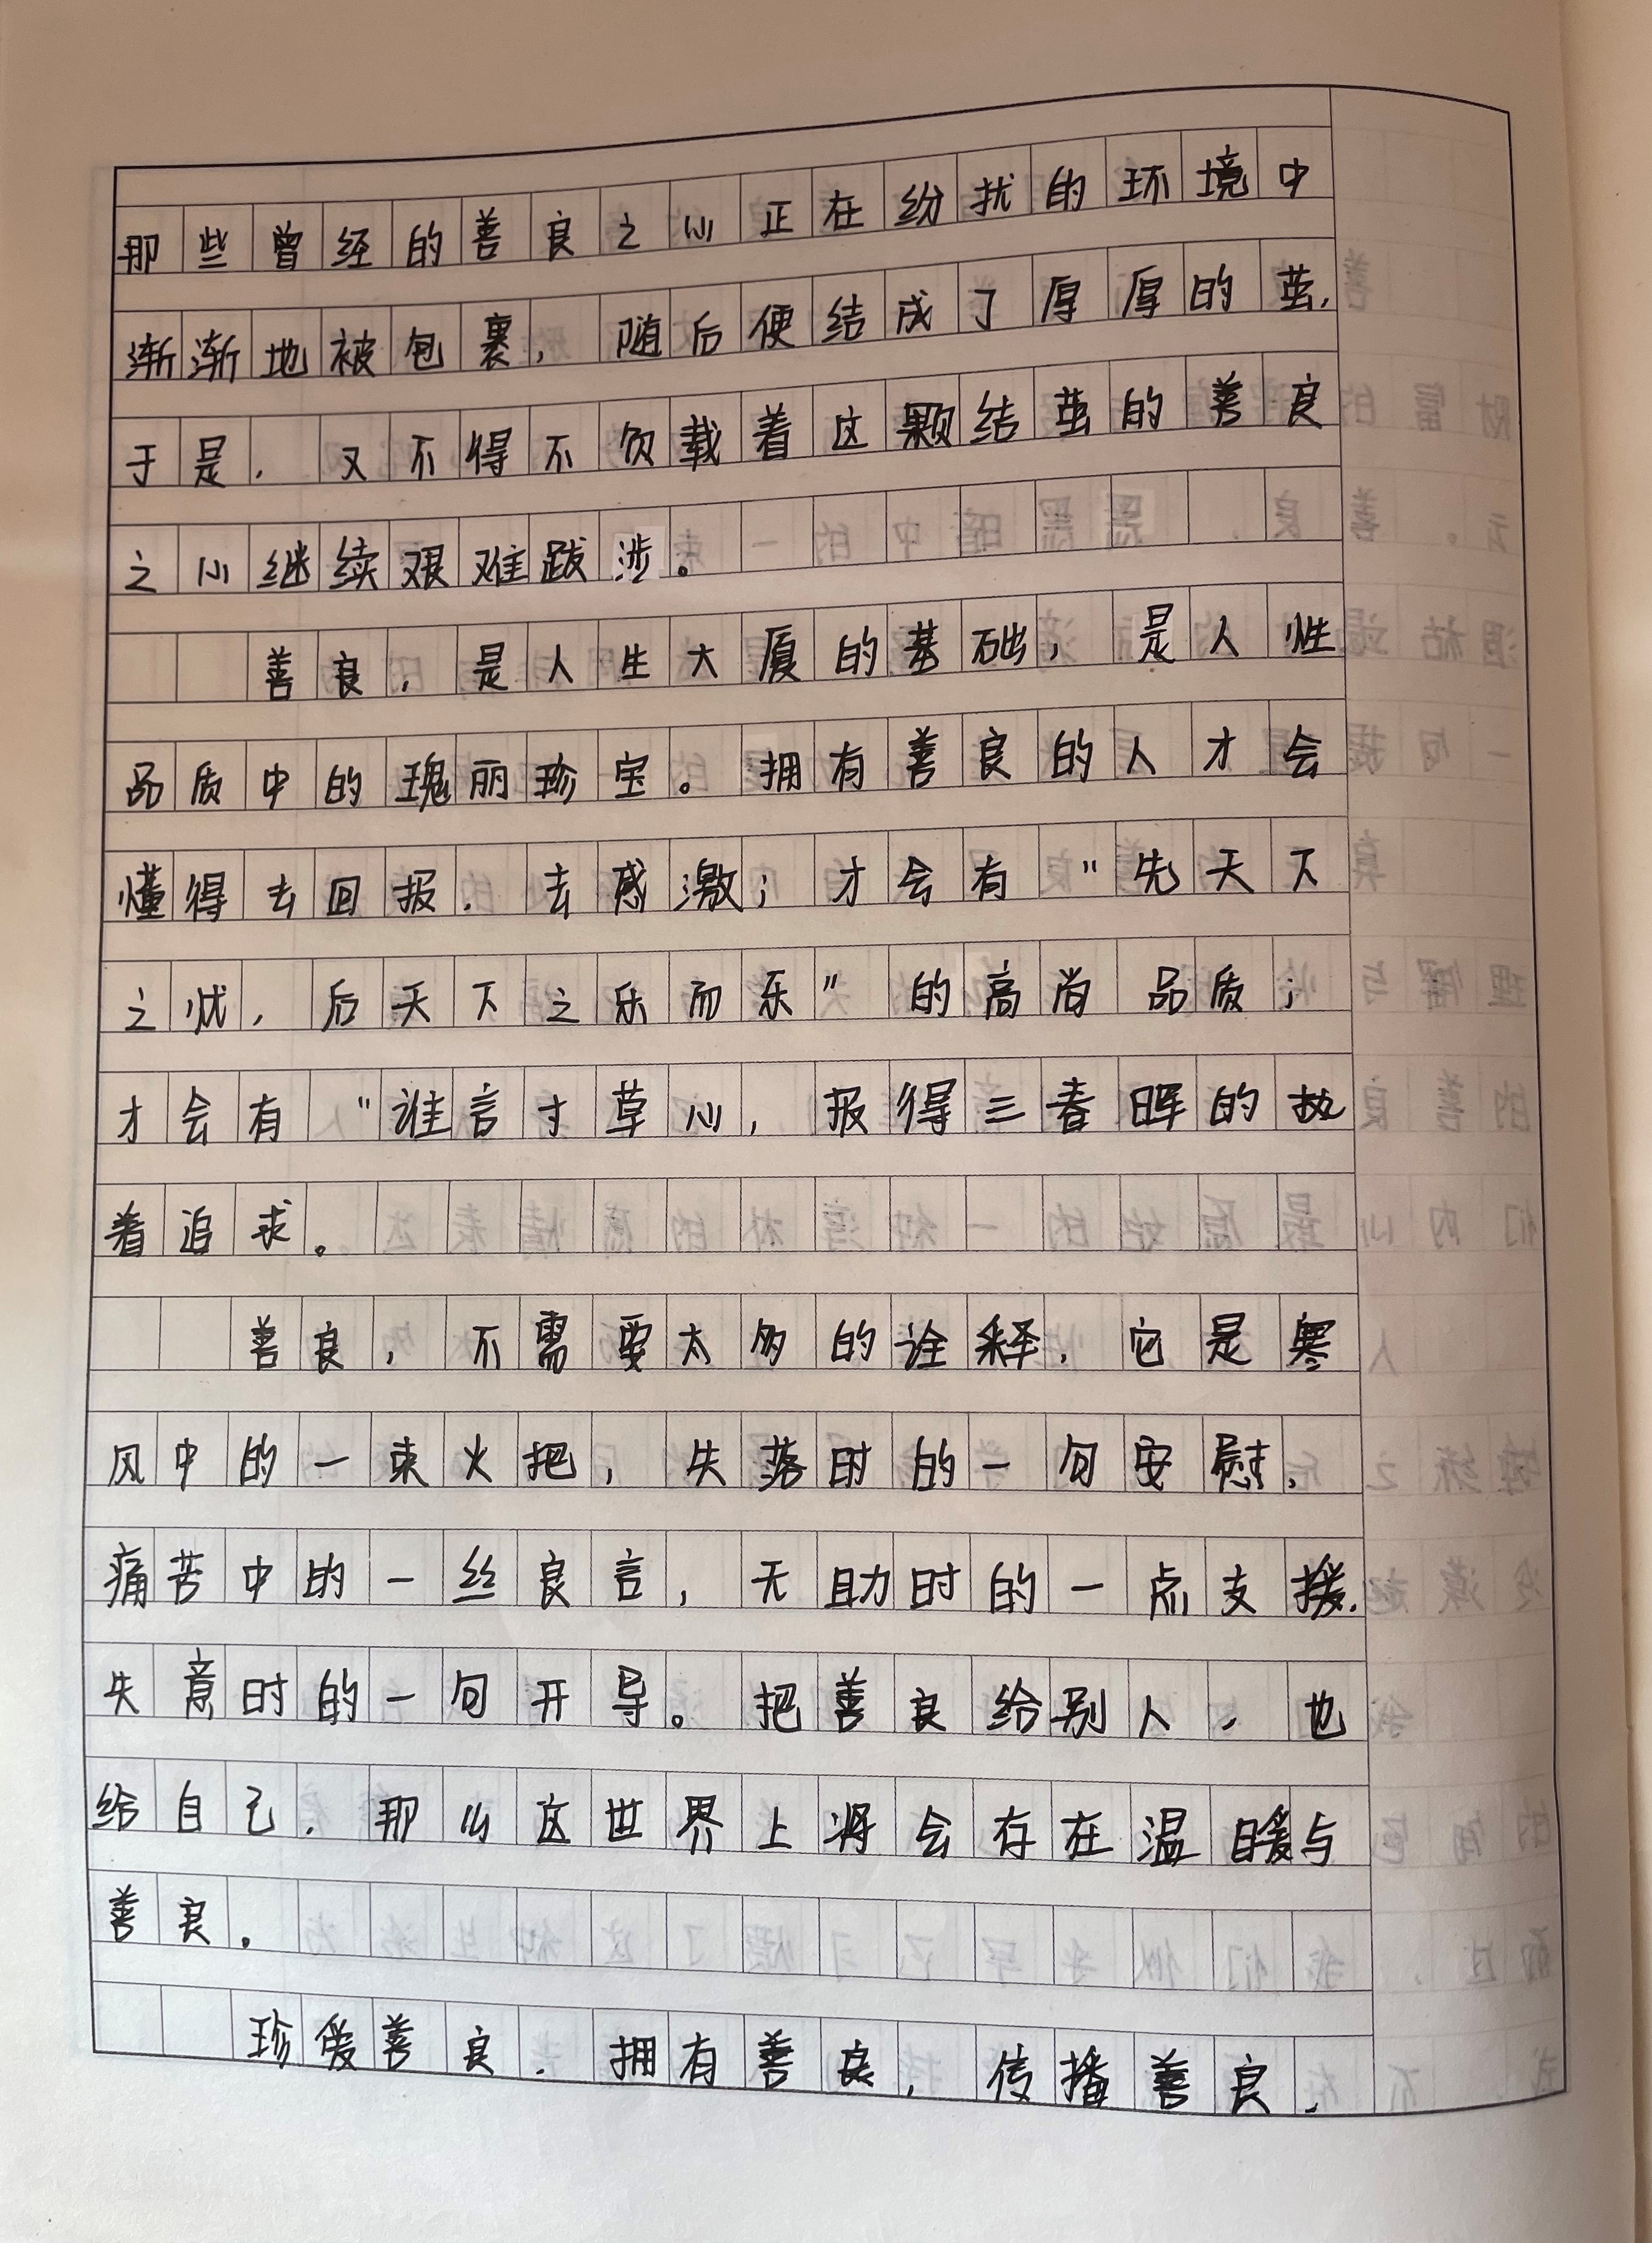 那些曾经的善良之心正在纷扰的环境中
渐渐地被包裹，随后便结成了厚厚的茧，
于是，又不得不负载着这颗结茧的善良
之心继续艰难跋涉。
善良，是人生大厦的基础，是人性
品质中的瑰丽珍宝。拥有善良的人才会
懂得去回报，去感激；才会有“先天下
之忧，后天下之乐而乐”的高尚品质；
才会有“谁言寸草心，报得三春晖的执
着追求。
善良，不需要太多的诠释，它是寒
风中的一束火把，失落时的一句安慰，
痛苦中的一丝良言，无助时的一点支援，
失意时的一句开导。把善良给别人，也
给自己，那么这世界上将会存在温暖与
善良。
珍爱善良，拥有善良，传播善良，